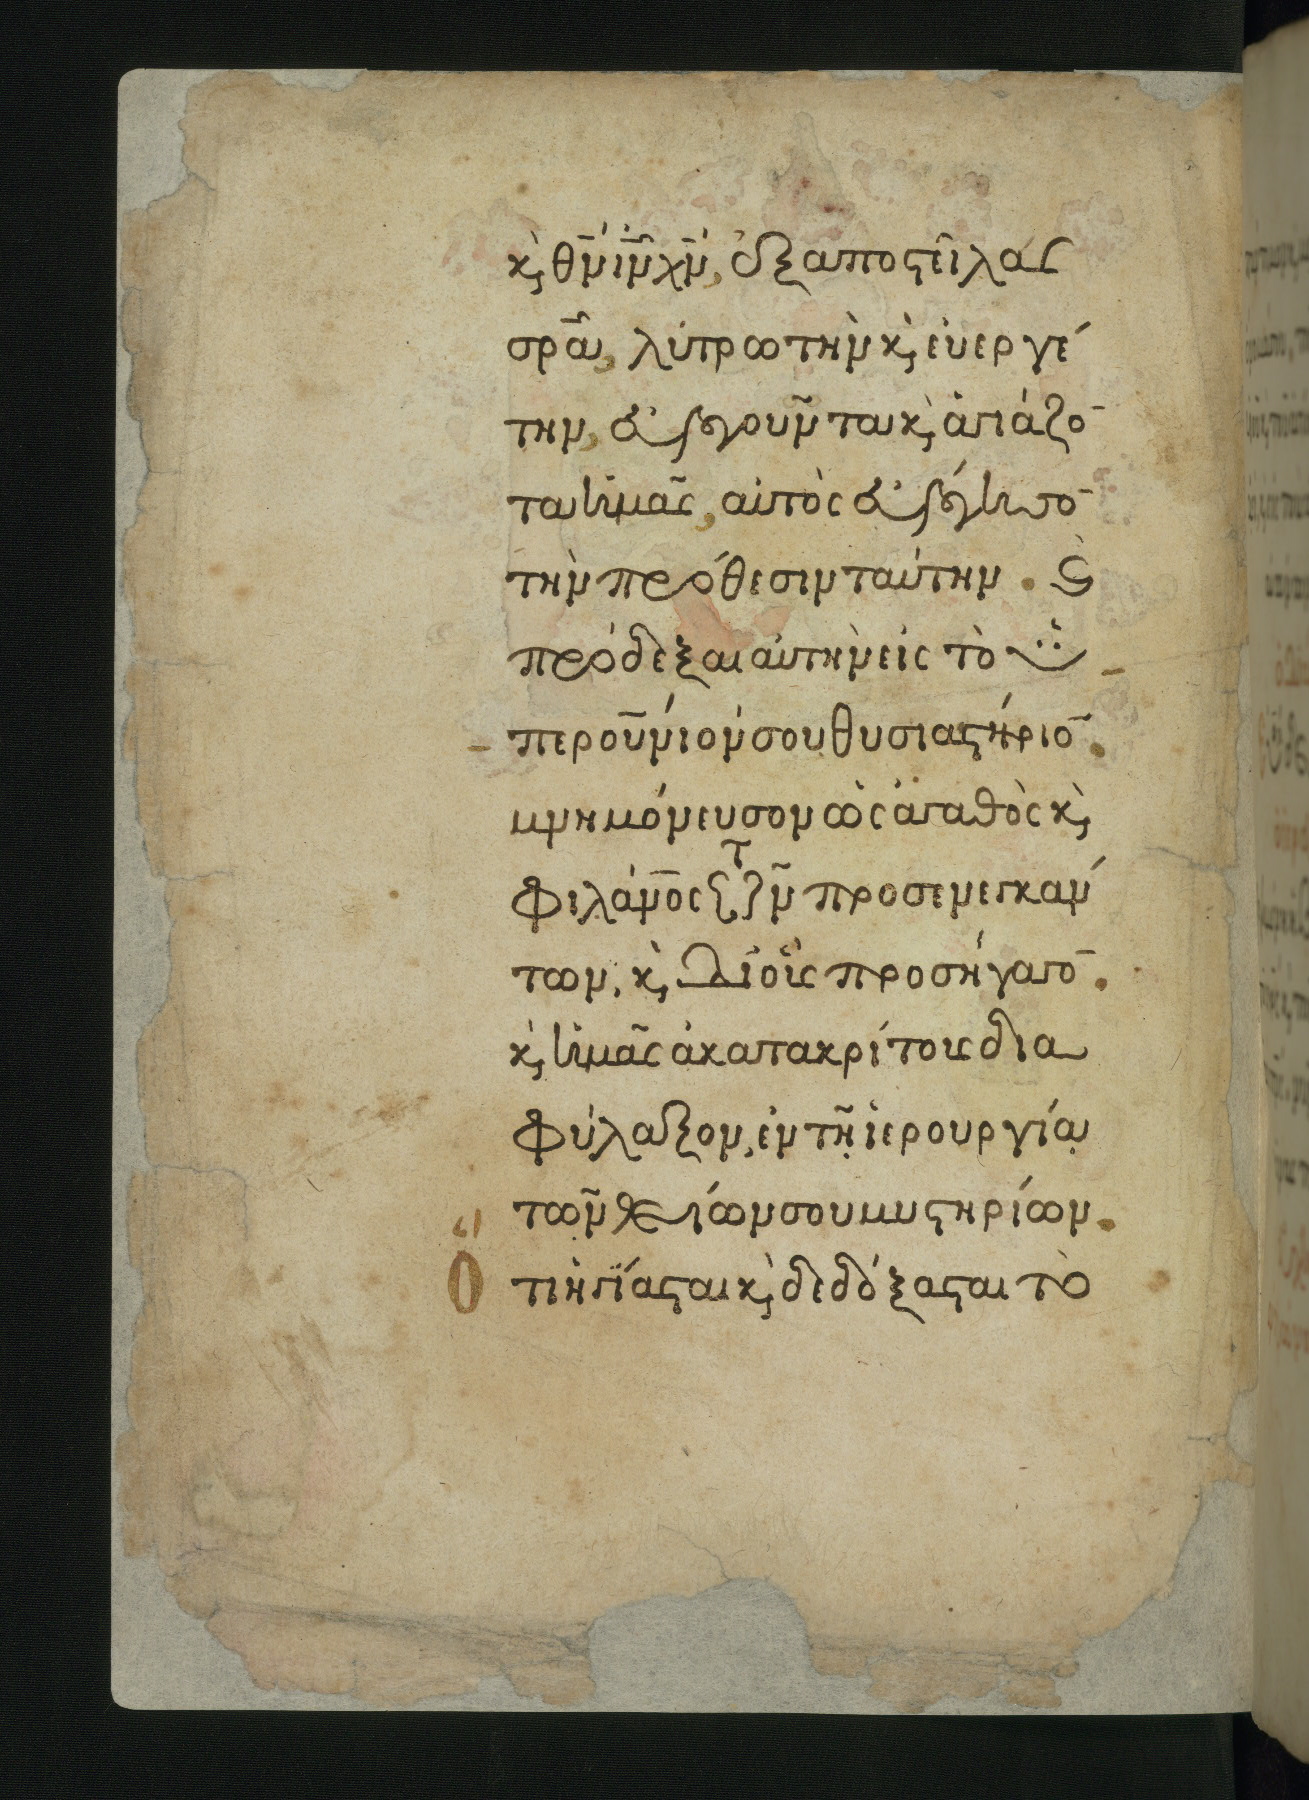 κ, θν ιν χν, ἐξαποστείλας
σρα, λυτρωτὴν κ, εὐεργέ
την, εὐλογοῦντα κ, ἁγιάζο
τα ἡμᾶς, αὐτὸς εὐλόγησο
τὴν πρόθεσιν ταύτην. κ
πρόδεξαι αὐτὴν εἰς τὸ ὑ
περουνιόν σου θυσιαστήριο.
μνημόνευσον ὡς ἀγαθὸς κ,
φιλάνος τῶν προσενεγκάν
των, κ, δι' οὓς προσήγαγο.
κ, ἡμᾶς ἀκατακρίτους δια
φύλαξον, ἐν τῇ ἱερουργίᾳ
τῶν θείων σου μυστηρίων.
Ὅτι ἡγίασται κ, δεδόξασται τὸ